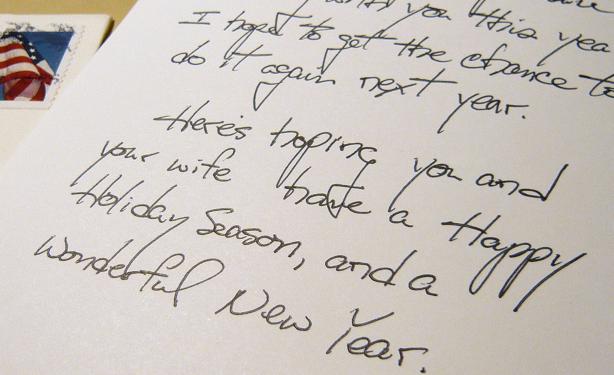 with you this year
I hope to get the chance to
do it again next year.
Here's hoping you and
your wife have a Happy
Holiday Season, and a
Wonderful New Year.